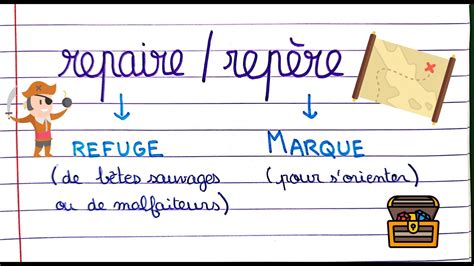 repaire / repère
REFUGE MARQUE
(de bêtes sauvages (pour s'orienter)
ou de malfaiteurs)